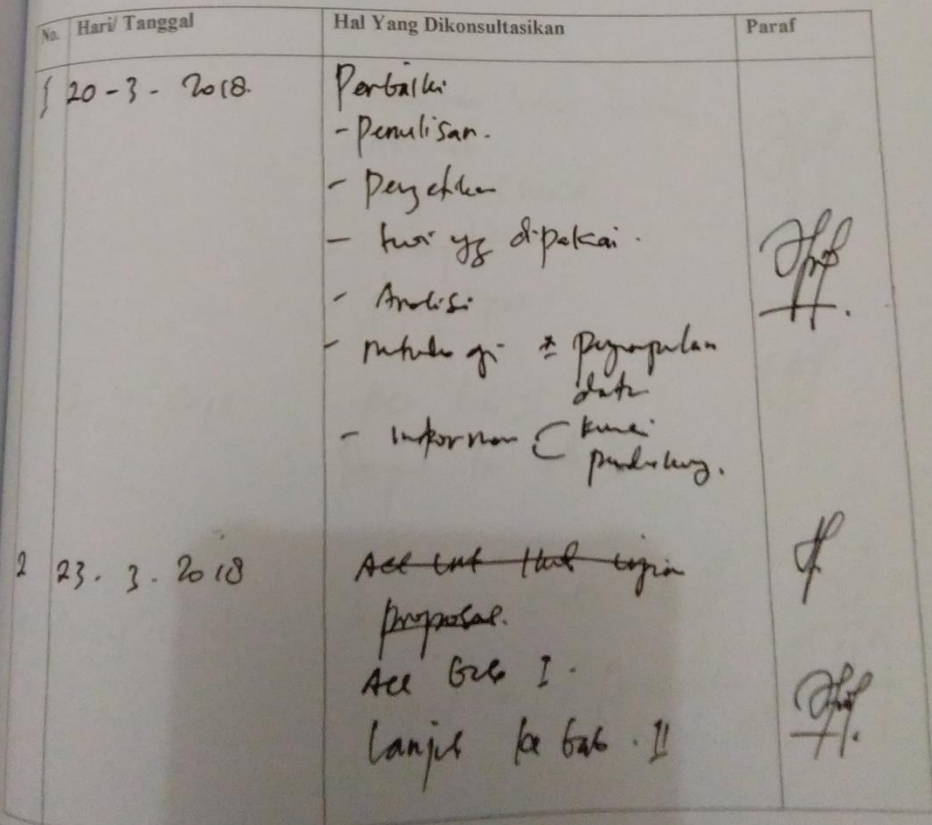 No. Hari/ Tanggal Hal Yang Dikonsultasikan Paraf
1 20-3-2018. Perbaiki
- Penulisan.
- Pengetikan
- teori yg dipakai.
- Analisi
- Metodologi pengumpulan
data
- Informan kunci
pendukung.
2 23.3.2018 Acc unt
proposal.
Acc Bab I.
Lanjut ke bab. II